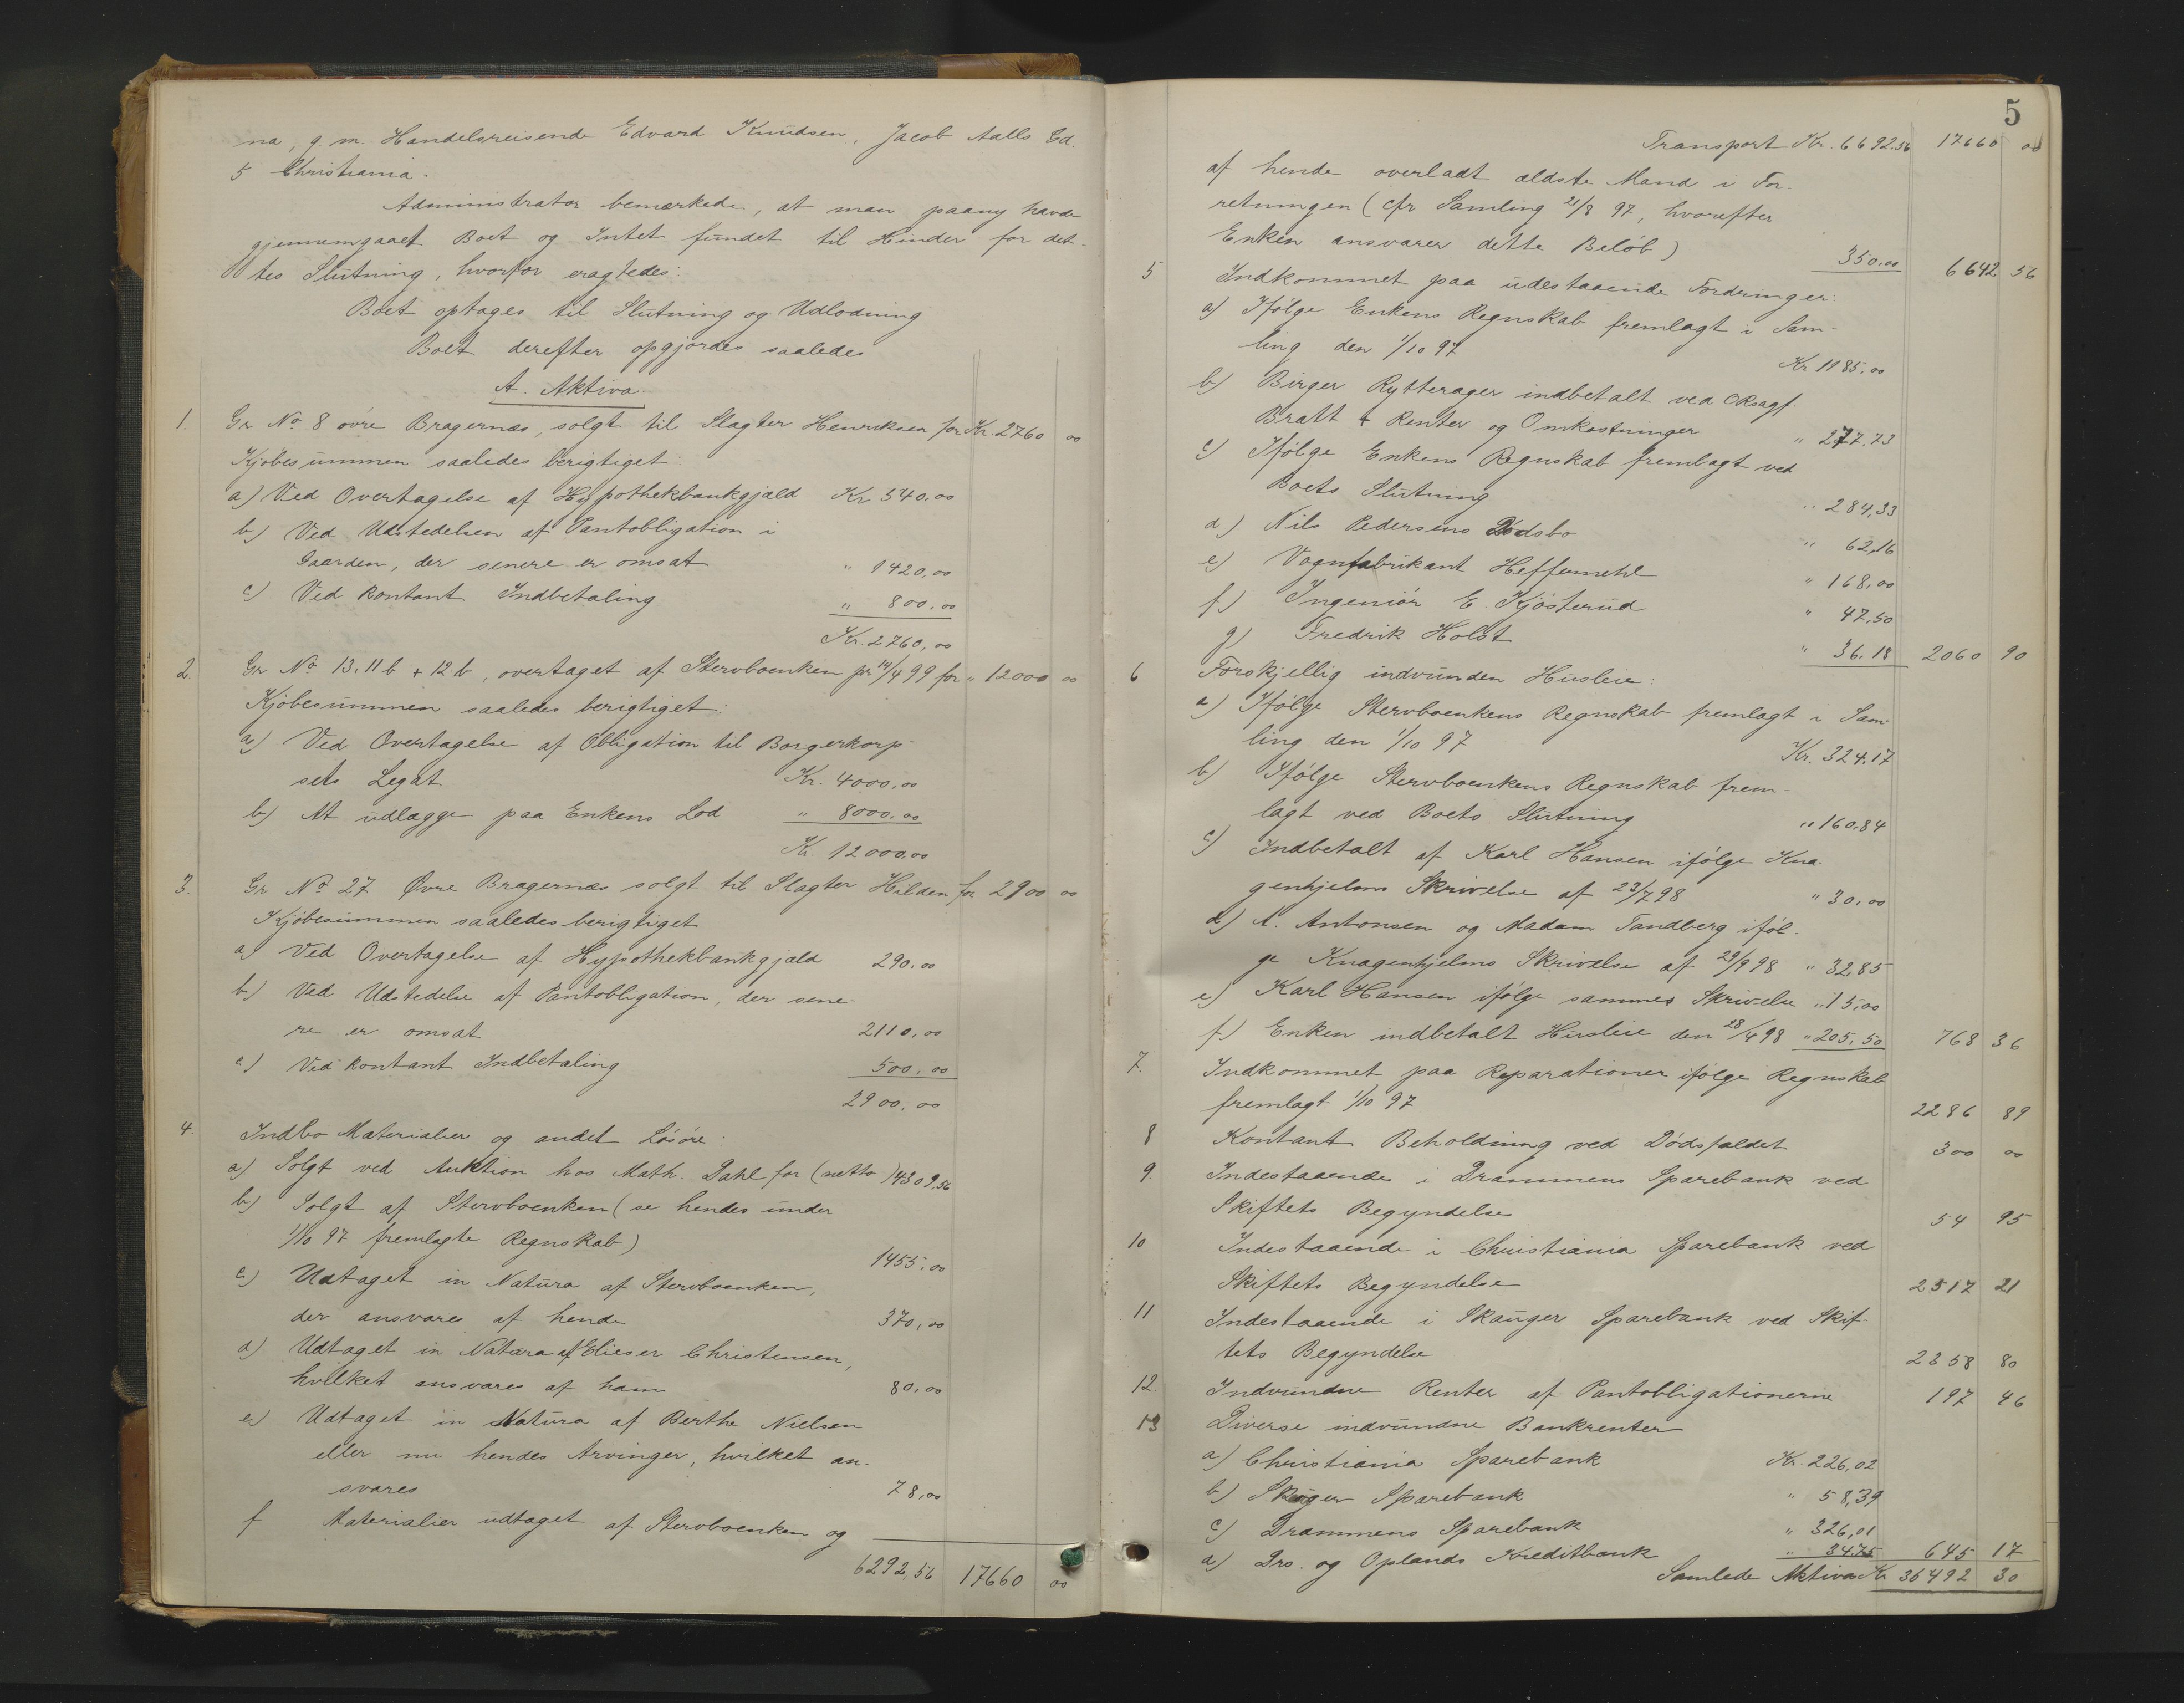 na, g. m. Handelsreisende Edvard Knudsen, Jacob Aalls Gd.
5 Christiania.
Administrator bemærkede, at man paany havde
gjennemgaaet Boet og Intet fundet til Hinder for det-
tes Slutning, hvorfor eragtedes:
Boet optages til Slutning og Udlodning
Boet derefter opgjordes saaledes
A. Aktiva.
1. Gr No 8 øvre Bragernæs, solgt til Slagter Henriksen for Kr 2760 00
Kjøbesummen saaledes berigtiget:
a) Ved Overtagelse af Hypothekbankgjæld Kr 540,00
b) Ved Udstedelsen af Pantobligation i
Gaarden, der senere er omsat " 1420,00
c) Ved kontant Indbetaling " 800,00
Kr. 2760,00
2. Gr No 13, 11b + 12b, overtaget af Stervboenken pr 14/4 99 for " 12000 00
Kjøbesummen saaledes berigtiget:
a) Ved Overtagelse af Obligation til Borgerkorp-
sets Legat Kr. 4000,00
b) At udlægge paa Enkens Lod " 8000,00
Kr. 12000,00
3. Gr No 27 Øvre Bragernæs solgt til Slagter Hilden for 2900 00
Kjøbesummen saaledes berigtiget
a) Ved Overtagelse af Hypothekbankgjæld 290,00
b) Ved Udstedelse af Pantobligation, der sene-
re er omsat 2110,00
c) Ved kontant Indbetaling 500,00
2900,00
4. Indbo Materialier og andet Løsøre:
a) Solgt ved Auktion hos Math. Dahl for (netto) 4309,56
b) Solgt af Stervboenken (se hendes under
1/10 97 fremlagte Regnskab) 1455,00
c) Udtaget in Natura af Stervboenken,
der ansvares af hende 370,00
d) Udtaget in Natura af Elieser Christensen,
hvilket ansvares af ham 80,00
e) Udtaget in Natura af Berthe Nielsen
eller nu hendes Arvinger, hvilket an-
svares 78,00
f Materialier udtaget af Stervboenken og
6292,56 17660 00
5
Transport Kr. 6692.56 17660 00
af hende overladt ældste Mand i For-
retningen (cfr Samling 21/8 97, hvorefter
Enken ansvarer dette Beløb) 350,00 6642 56
5. Indkommet paa udestaaende Fordringer:
a) Ifølge Enkens Regnskab fremlagt i Sam-
ling den 1/10 97 Kr 1185,00
b) Birger Rytterager indbetalt ved ORsagf
Bratt + Renter og Omkostninger " 277,73
c) Ifølge Enkens Regnskab fremlagt ved
Boets Slutning " 284,33
d) Nils Pedersens Dødsbo " 62,16
e) Vognfabrikant Heffermehl " 168,00
f) Ingeniør E. Kjøsterud " 47,50
g) Fredrik Holst " 36,18 2060 90
6 Forskjellig indvunden Husleie:
a) Ifølge Stervboenkens Regnskab fremlagt i Sam-
ling den 1/10 97 Kr. 324.17
b) Ifølge Stervboenkens Regnskab frem-
lagt ved Boets Slutning " 160,84
c) Indbetalt af Karl Hansen ifølge Kna-
genhjelms Skrivelse af 23/7 98 " 30,00
d) A. Antonsen og Madam Tandberg iføl-
ge Knagenhjelms Skrivelse af 29/9 98 " 32,85
e) Karl Hansen ifølge sammes Skrivelse " 15,00
f) Enken indbetalt Husleie den 28/4 98 " 205,50 768 36
7. Indkommet paa Reparationer ifølge Regnskab
fremlagt 1/10 97 2286 89
8 Kontant Beholdning ved Dødsfaldet 300 00
9. Indestaaende i Drammens Sparebank ved
Skiftets Begyndelse 54 95
10 Indestaaende i Christiania Sparebank ved
Skiftets Begyndelse 2517 21
11 Indestaaende i Skauger Sparebank ved Skif-
tets Begyndelse 2358 80
12. Indvundne Renter af Pantobligationerne 197 46
13 Diverse indvundne Bankrenter
a) Christiania Sparebank Kr. 226,02
b) Skouger Sparebank " 58,39
c) Drammens Sparebank " 326,01
d) Drs. og Oplands Kreditbank " 34.75 645 17
Samlede Aktiva Kr 35492 30